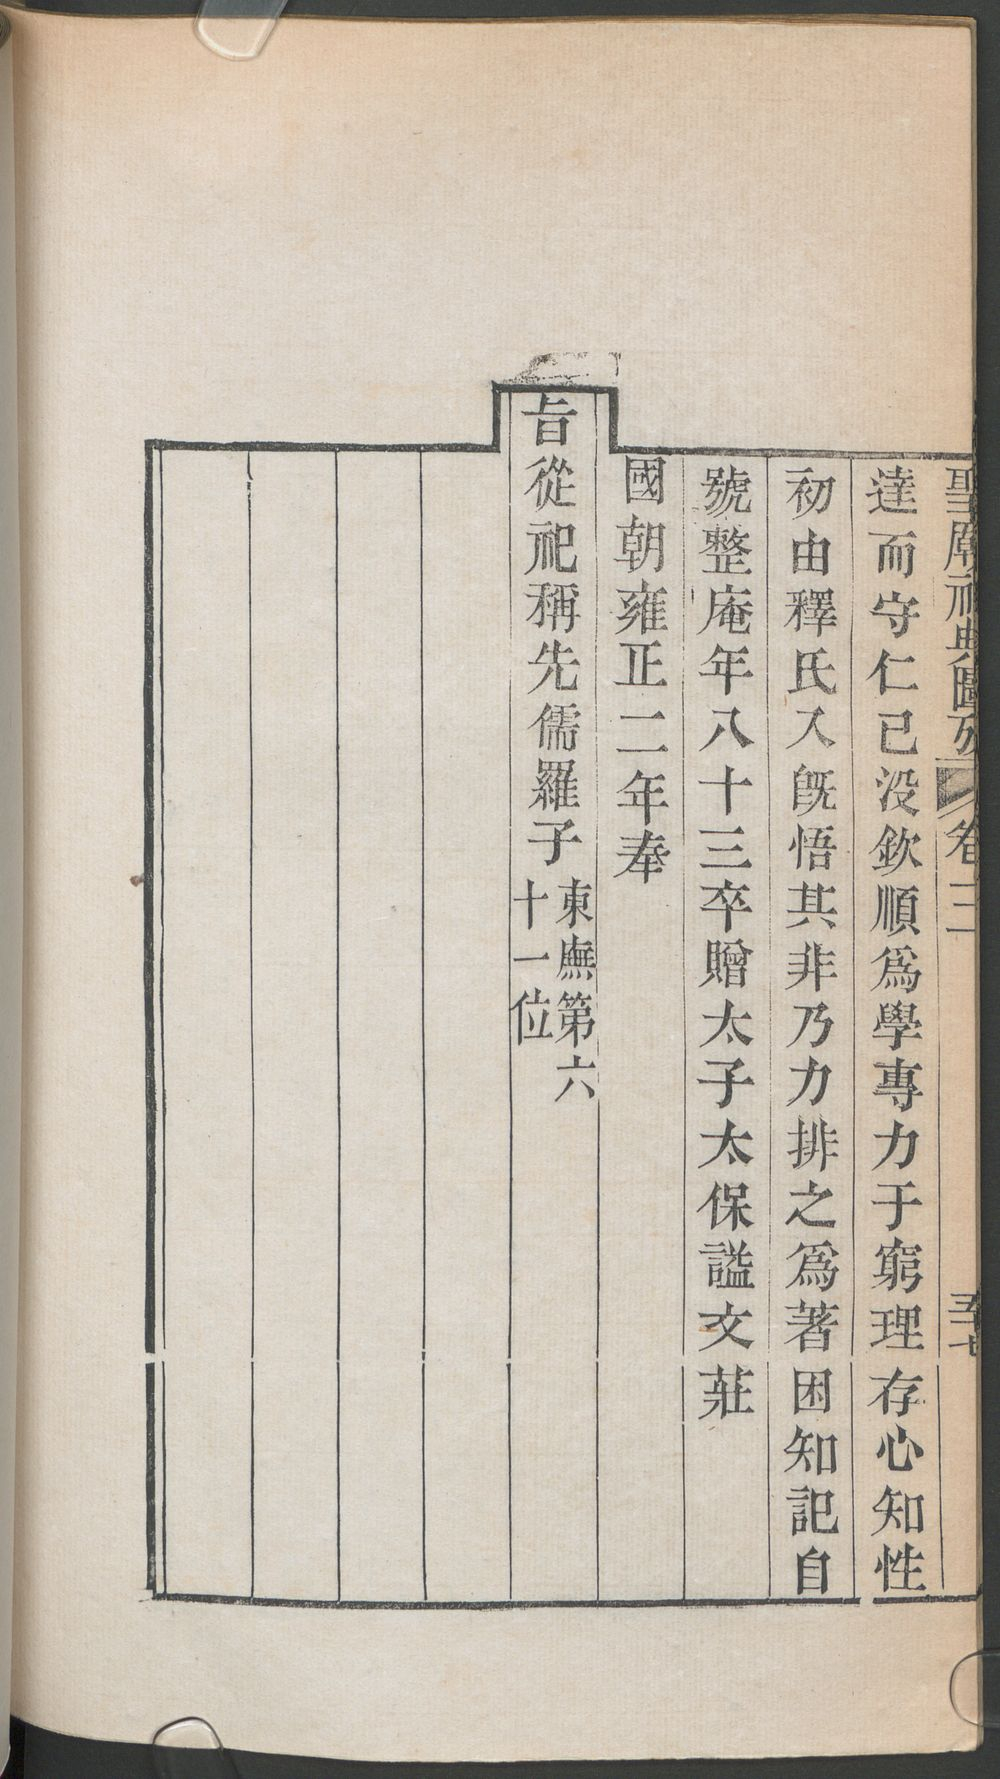 聖廟祀典圖攷 卷三 五十七
達而守仁已没欽順爲學專力于窮理存心知性
初由釋氏入旣悟其非乃力排之爲著困知記自
號整庵年八十三卒贈太子太保諡文莊
國朝雍正二年奉
旨從祀稱先儒羅子
東廡第六
十一位